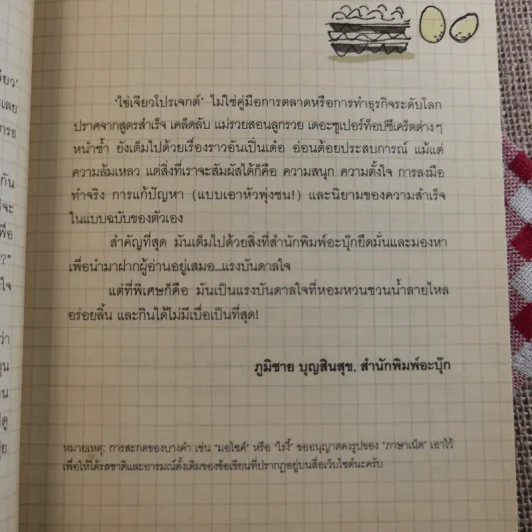 ียว'
เลย
กรธ
กัน
จะ
พื่อ
?"
ใจ
ว่า
ุน
ัน
ดู
ุ่ย
'ไข่เจียวโปรเจกต์' ไม่ใช่คู่มือการตลาดหรือการทำธุรกิจระดับโลก
ปราศจากสูตรสำเร็จ เคล็ดลับ แม่รวยสอนลูกรวย เดอะซูเปอร์ท็อปซีเคร็ตต่างๆ
หนำซ้ำ ยังเต็มไปด้วยเรื่องราวอันเป็นเด๋อ อ่อนด้อยประสบการณ์ แม้แต่
ความล้มเหลว แต่สิ่งที่เราจะสัมผัสได้ก็คือ ความสนุก ความตั้งใจ การลงมือ
ทำจริง การแก้ปัญหา (แบบเอาหัวพุ่งชน!) และนิยามของความสำเร็จ
ในแบบฉบับของตัวเอง
สำคัญที่สุด มันเต็มไปด้วยสิ่งที่สำนักพิมพ์อะบุ๊กยึดมั่นและมองหา
เพื่อนำมาฝากผู้อ่านอยู่เสมอ...แรงบันดาลใจ
แต่ที่พิเศษก็คือ มันเป็นแรงบันดาลใจที่หอมหวนชวนน้ำลายไหล
อร่อยลิ้น และกินได้ไม่มีเบื่อเป็นที่สุด!
ภูมิชาย บุญสินสุข, สำนักพิมพ์อะบุ๊ก
หมายเหตุ: การสะกดของบางคำ เช่น "มอไซค์" หรือ "ไรงี้" ขออนุญาตคงรูปของ "ภาษาเน็ต" เอาไว้
เพื่อให้ได้รสชาติและอารมณ์ดั้งเดิมของข้อเขียนที่ปรากฏอยู่บนสื่อเว็บไซต์นะครับ